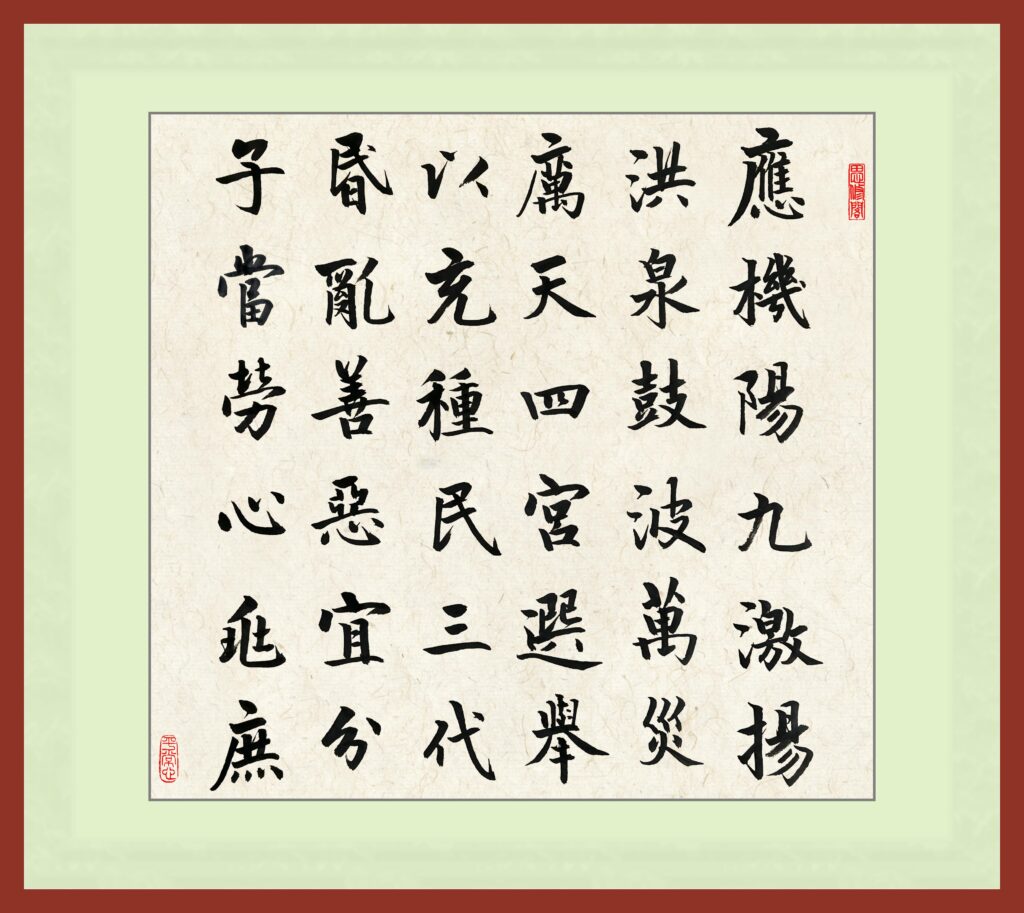 應機陽九激揚
洪泉鼓波萬災
厲天四宮選舉
以充種民三代
昏亂善惡宜分
子當勞心庶
平常心